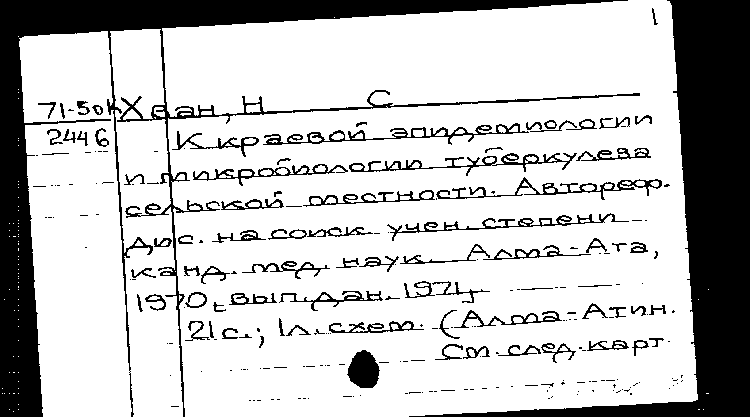 1
71-50к Хван, Н С
2446 К краевой эпидемиологии
и микробиологии туберкулеза
сельской местности. Автореф.
дис. на соиск. учен. степени
канд. мед. наук. Алма-Ата,
1970, вып. дан. 1971.
21 с.; 1 л. схем. (Алма-Атин.
См. след. карт.